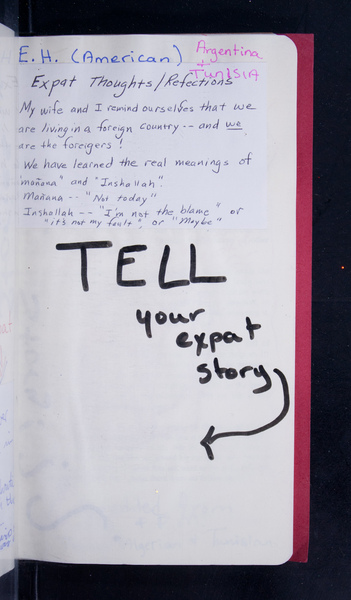 E.H. (American)
Argentina
+
TUNISIA
Expat Thoughts/Refections
My wife and I remind ourselves that we
are living in a foreign country -- and we
are the foreigers!
We have learned the real meanings of
"mañana" and "Inshallah".
Mañana -- "Not today"
Inshallah -- "I'm not the blame" or
"it's not my fault", or "Maybe"
TELL
your
expat
story